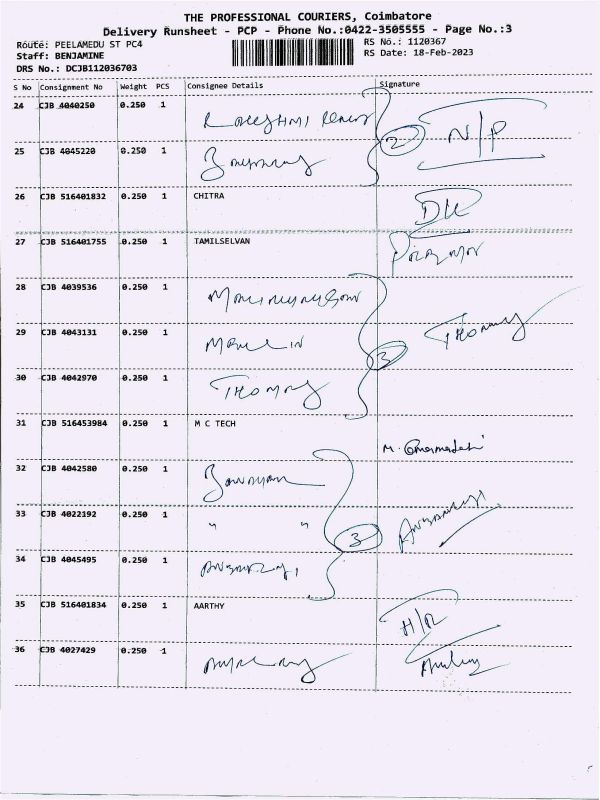 THE PROFESSIONAL COURIERS, Coimbatore
Delivery Runsheet - PCP - Phone No.:0422-3505555 - Page No.:3
Route: PEELAMEDU ST PC4
RS No.: 1120367
Staff: BENJAMINE
RS Date: 18-Feb-2023
DRS No.: DCJB112036703
S No Consignment No Weight PCS Consignee Details Signature
24 CJB 4040250 0.250 1
2 N/P
25 CJB 4045220 0.250 1
26 CJB 516401832 0.250 1 CHITRA
27 CJB 516401755 0.250 1 TAMILSELVAN
28 CJB 4039536 0.250 1
29 CJB 4043131 0.250 1 3 Thommy
30 CJB 4042970 0.250 1 Thommy
31 CJB 516453984 0.250 1 M C TECH
32 CJB 4042580 0.250 1
33 CJB 4022192 0.250 1 " " 3
34 CJB 4045495 0.250 1
35 CJB 516401834 0.250 1 AARTHY H/R
36 CJB 4027429 0.250 1